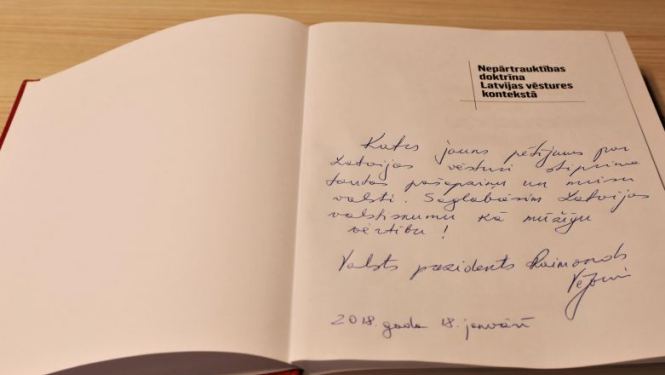 Nepārtrauktības
doktrīna
Latvijas vēstures
kontekstā
Katrs jauns pētījums par
Latvijas vēsturi stiprina
tautas pašapziņu un mūsu
valsti. Saglabāsim Latvijas
valstiskumu kā mūžīgu
vērtību!
Valsts prezidents Raimonds
Vējonis
2018. gada 18. janvārī